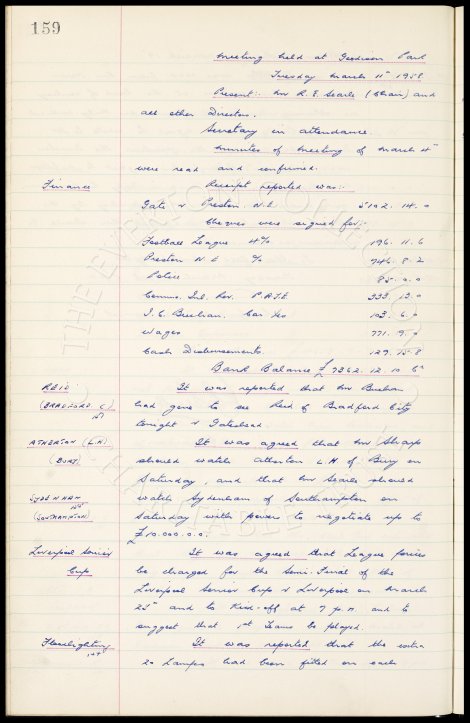 159
Meeting held at Goodison Park
Tuesday March 11th 1958
Present:- Mr R. E. Searle (Chair) and
all other Directors.
Secretary in attendance.
Minutes of Meeting of March 4th
were read and confirmed.
Finance Receipt reported was:-
Gate v Preston N.E. 5102. 14. 0
Cheques were signed for:-
Football League 4% 196. 11. 6
Preston N E % 746. 8. 2
Police 85. 0. 0
Comms. Inl. Rev. P.A.Y.E. 333. 13. 0
I. C. Buchan. Car Exs 103. 6. 0
Wages 771. 9. 0
Cash Disbursements. 127. 15. 8
Bank Balance £7362. 12. 10
REID It was reported that Mr Buchan
(BRADFORD C.) had gone to see Reid of Bradford City
tonight v Gateshead
ATHERTON (L.H.) It was agreed that Mr Sharp
(BURY) should watch Atherton L.H. of Bury on
Saturday, and that Mr Searle should
SYDENHAM watch Sydenham of Southampton on
(SOUTHAMPTON) Saturday with powers to negotiate up to
£10.000.0.0.
Liverpool Senior It was agreed that League prices
Cup be charged for the Semi-Final of the
Liverpool Senior Cup v Liverpool on March
and to Kick-off at 7 p.m. and to
suggest that 1st Teams be played.
Floodlighting It was reported that the extra
lamps had been fitted on each
THE EVERTON COLLECTION
CHARITABLE